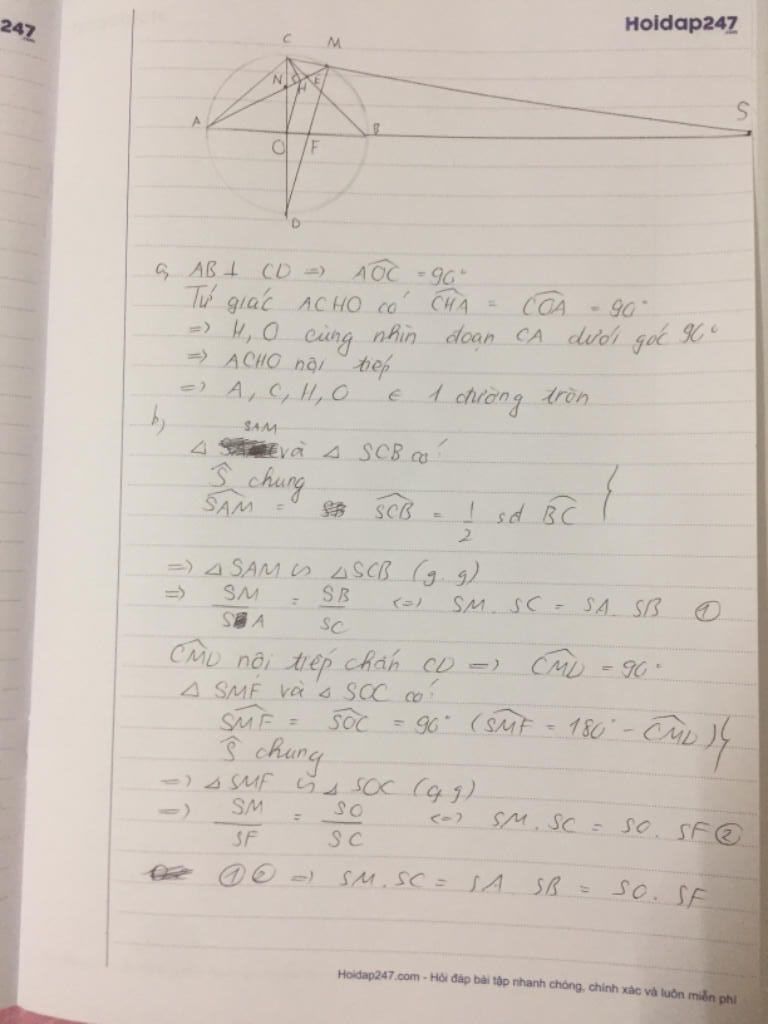 247
.com
Hoidap247
.com
C M
N E
H
A B S
O F
D
a, AB ⊥ CD => AOC = 90°
Tứ giác ACHO có CHA = COA = 90°
=> H, O cùng nhìn đoạn CA dưới góc 90°
=> ACHO nội tiếp
=> A, C, H, O ∈ 1 đường tròn
b,
SAM
△ và △ SCB có
Ŝ chung
SAM = SCB = 1/2 sđ BC
=> △SAM ∽ △SCB (g.g)
=> SM/SA = SB/SC <=> SM.SC = SA.SB ①
CMD nội tiếp chắn CD => CMD = 90°
△ SMF và △ SOC có
SMF = SOC = 90° (SMF = 180° - CMD)
Ŝ chung
=> △SMF ∽ △SOC (g.g)
=> SM/SF = SO/SC <=> SM.SC = SO.SF ②
①② => SM.SC = SA SB = SO.SF
Hoidap247.com - Hỏi đáp bài tập nhanh chóng, chính xác và luôn miễn phí